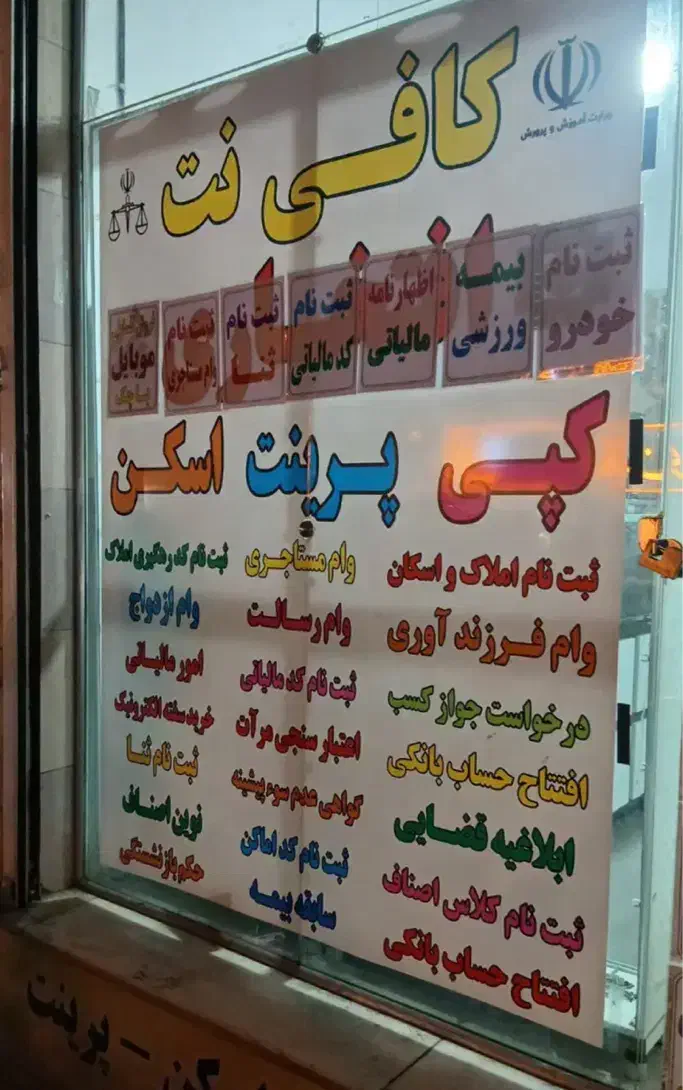 کافی نت
وزارت آموزش و پرورش
ثبت نام خودرو
بیمه ورزشی
اظهارنامه مالیاتی
ثبت نام کد مالیاتی
ثبت نام ثنا
ثبت نام وام مستاجری
موبایل
کپی پرینت اسکن
ثبت نام املاک و اسکان
وام فرزند آوری
درخواست جواز کسب
افتتاح حساب بانکی
ابلاغیه قضایی
ثبت نام کلاس اصناف
افتتاح حساب بانکی
وام مستاجری
وام رسالت
ثبت نام کد مالیاتی
اعتبار سنجی مرآت
گواهی عدم سوء پیشینه
ثبت نام کد اماکن
سابقه بیمه
ثبت نام کد رهگیری املاک
وام ازدواج
امور مالیاتی
خرید سفته الکترونیک
ثبت نام ثنا
نوین اصناف
حکم بازنشستگی
پرینت